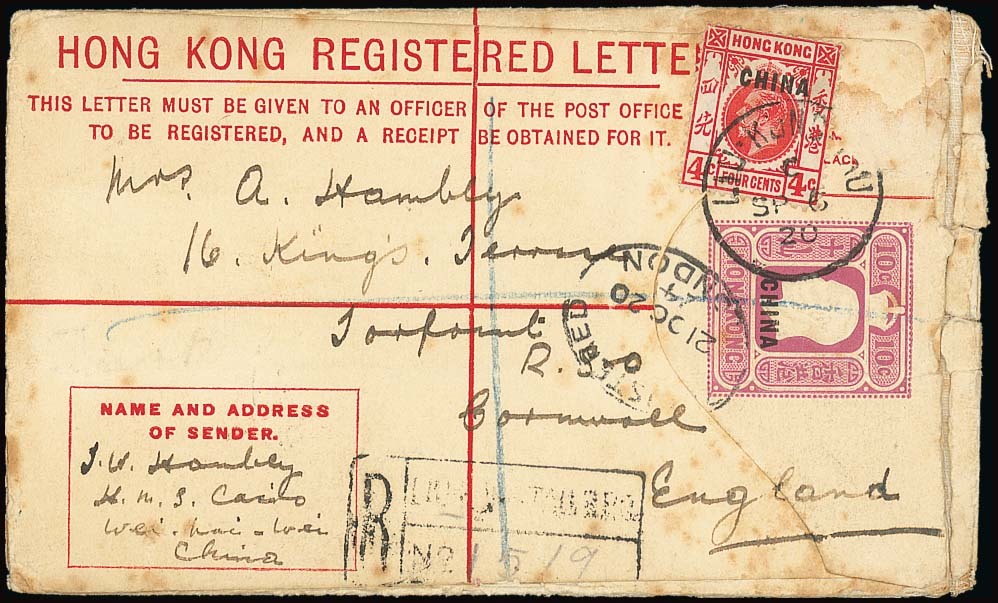 HONG KONG REGISTERED LETTE
THIS LETTER MUST BE GIVEN TO AN OFFICER OF THE POST OFFICE
TO BE REGISTERED, AND A RECEIPT BE OBTAINED FOR IT.
HONG KONG
CHINA
四
香港
4c FOUR CENTS 4c
LACE
LIU KUNG TAU
C
SP 6
20
Mrs. A. Hambly
16. King's. Terrace
Torpoint
R.S.O
Cornwall
England
LONDON
21 OC 20
10C HONG KONG 10C
CHINA
NAME AND ADDRESS
OF SENDER.
J. W. Hambly
H. M. S. Cairo
Wei. hai. Wei
China
R
No 1519